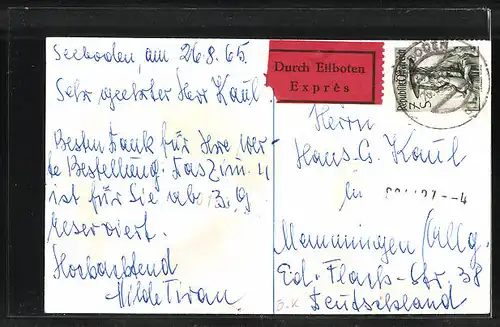 Seeboden, am 26.8.65
Sehr geehrter Herr Kaul!
Besten Dank für Ihre wer-
te Bestellung. Das Zim. 4
ist für Sie ab 3.9
reserviert.
Hochachtend
Hilde
Durch Eilboten
Exprès
Republik Österreich
Herrn
Hans-G. Kaul
in
Memmingen /Allg.
Ed. Flach-Str. 38
Deutschland